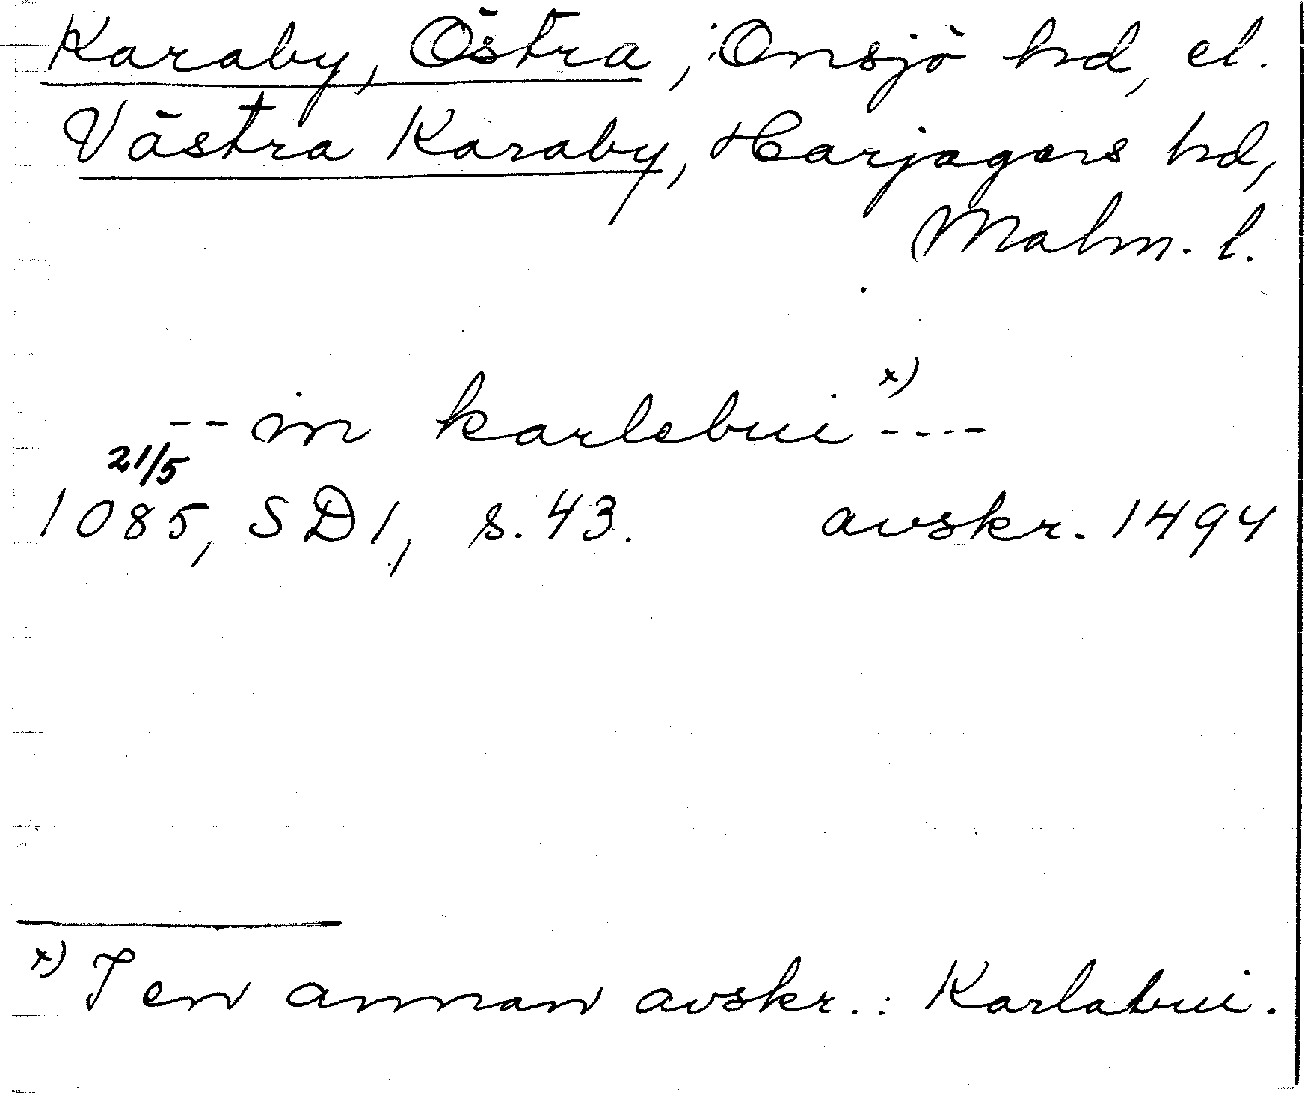 Karaby, Östra, Onsjö hd, el.
Västra Karaby, Harjagers hd,
Malm. l.
-- in karlebui x) ----
21/5
1085, SD 1, s. 43. avskr. 1494
x) I en annan avskr.: Karlabui.